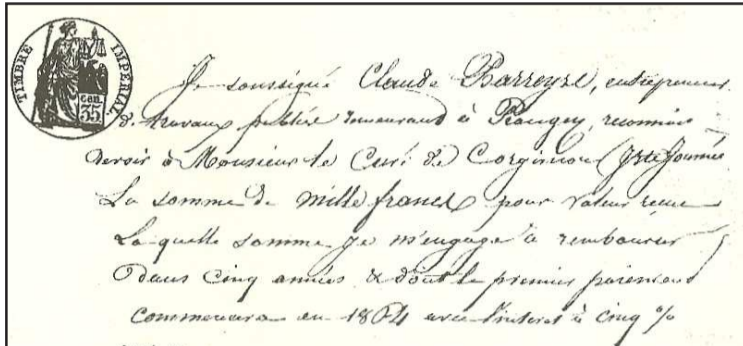 TIMBRE IMPERIAL
CEN. 35
Je soussigné Claude Barreyre, entrepreneur
de travaux publics demeurant à Rougey, reconnais
devoir à Monsieur le Curé de Corgirnon (Hte Marne
La somme de mille francs pour valeur reçue
La quelle somme je m'engage à rembourser
Dans cinq années & dont le premier paiement
commencera en 1864 avec l'intéret à cinq %